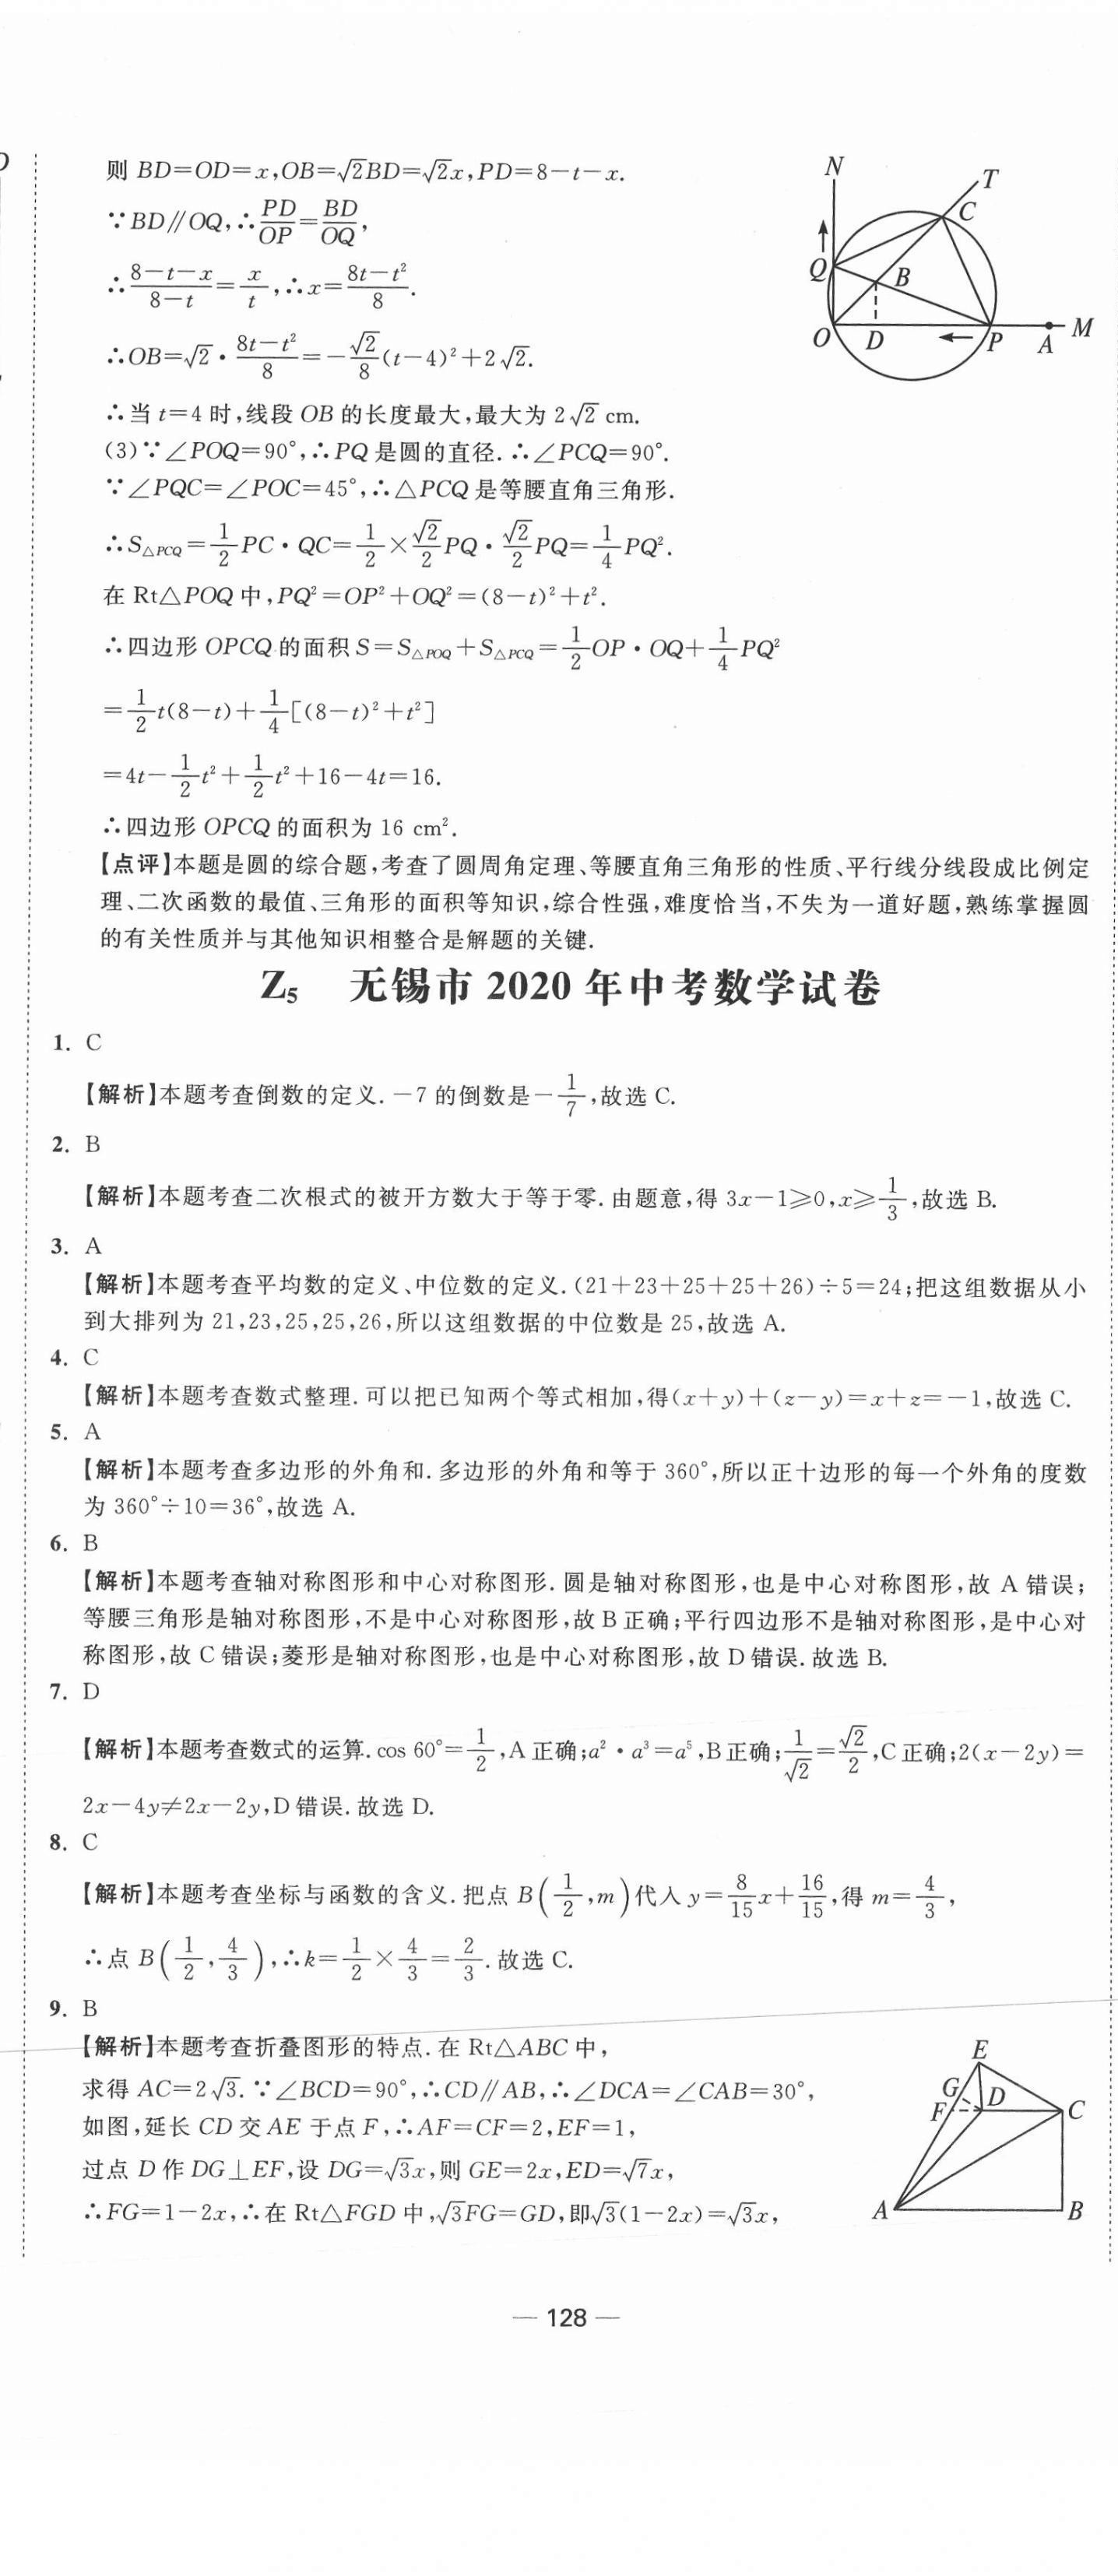 则 BD=OD=x,OB=√2BD=√2x,PD=8-t-x.
∵BD∥OQ,∴PD/OP=BD/OQ,
∴(8-t-x)/(8-t)=x/t,∴x=(8t-t²)/8.
∴OB=√2·(8t-t²)/8=-√2/8(t-4)²+2√2.
∴当 t=4 时,线段 OB 的长度最大,最大为 2√2 cm.
(3)∵∠POQ=90°,∴PQ 是圆的直径.∴∠PCQ=90°.
∵∠PQC=∠POC=45°,∴△PCQ 是等腰直角三角形.
∴S△PCQ=1/2PC·QC=1/2×√2/2PQ·√2/2PQ=1/4PQ².
在 Rt△POQ 中,PQ²=OP²+OQ²=(8-t)²+t².
∴四边形 OPCQ 的面积 S=S△POQ+S△PCQ=1/2OP·OQ+1/4PQ²
=1/2t(8-t)+1/4[(8-t)²+t²]
=4t-1/2t²+1/2t²+16-4t=16.
∴四边形 OPCQ 的面积为 16 cm².
N
T
C
Q
B
O
D
P
A
M
【点评】本题是圆的综合题,考查了圆周角定理、等腰直角三角形的性质、平行线分线段成比例定
理、二次函数的最值、三角形的面积等知识,综合性强,难度恰当,不失为一道好题,熟练掌握圆
的有关性质并与其他知识相整合是解题的关键.
Z₅ 无锡市 2020 年中考数学试卷
1. C
【解析】本题考查倒数的定义.-7 的倒数是-1/7,故选 C.
2. B
【解析】本题考查二次根式的被开方数大于等于零.由题意,得 3x-1≥0,x≥1/3,故选 B.
3. A
【解析】本题考查平均数的定义、中位数的定义.(21+23+25+25+26)÷5=24;把这组数据从小
到大排列为 21,23,25,25,26,所以这组数据的中位数是 25,故选 A.
4. C
【解析】本题考查数式整理.可以把已知两个等式相加,得(x+y)+(z-y)=x+z=-1,故选 C.
5. A
【解析】本题考查多边形的外角和.多边形的外角和等于 360°,所以正十边形的每一个外角的度数
为 360°÷10=36°,故选 A.
6. B
【解析】本题考查轴对称图形和中心对称图形.圆是轴对称图形,也是中心对称图形,故 A 错误;
等腰三角形是轴对称图形,不是中心对称图形,故 B 正确;平行四边形不是轴对称图形,是中心对
称图形,故 C 错误;菱形是轴对称图形,也是中心对称图形,故 D 错误.故选 B.
7. D
【解析】本题考查数式的运算.cos 60°=1/2,A 正确;a²·a³=a⁵,B 正确;1/√2=√2/2,C 正确;2(x-2y)=
2x-4y≠2x-2y,D 错误.故选 D.
8. C
【解析】本题考查坐标与函数的含义.把点 B(1/2,m)代入 y=8/15x+16/15,得 m=4/3,
∴点 B(1/2,4/3),∴k=1/2×4/3=2/3.故选 C.
9. B
【解析】本题考查折叠图形的特点.在 Rt△ABC 中,
求得 AC=2√3.∵∠BCD=90°,∴CD∥AB,∴∠DCA=∠CAB=30°,
如图,延长 CD 交 AE 于点 F,∴AF=CF=2,EF=1,
过点 D 作 DG⊥EF,设 DG=√3x,则 GE=2x,ED=√7x,
∴FG=1-2x,∴在 Rt△FGD 中,√3FG=GD,即√3(1-2x)=√3x,
E
G
D
F
C
A
B
— 128 —